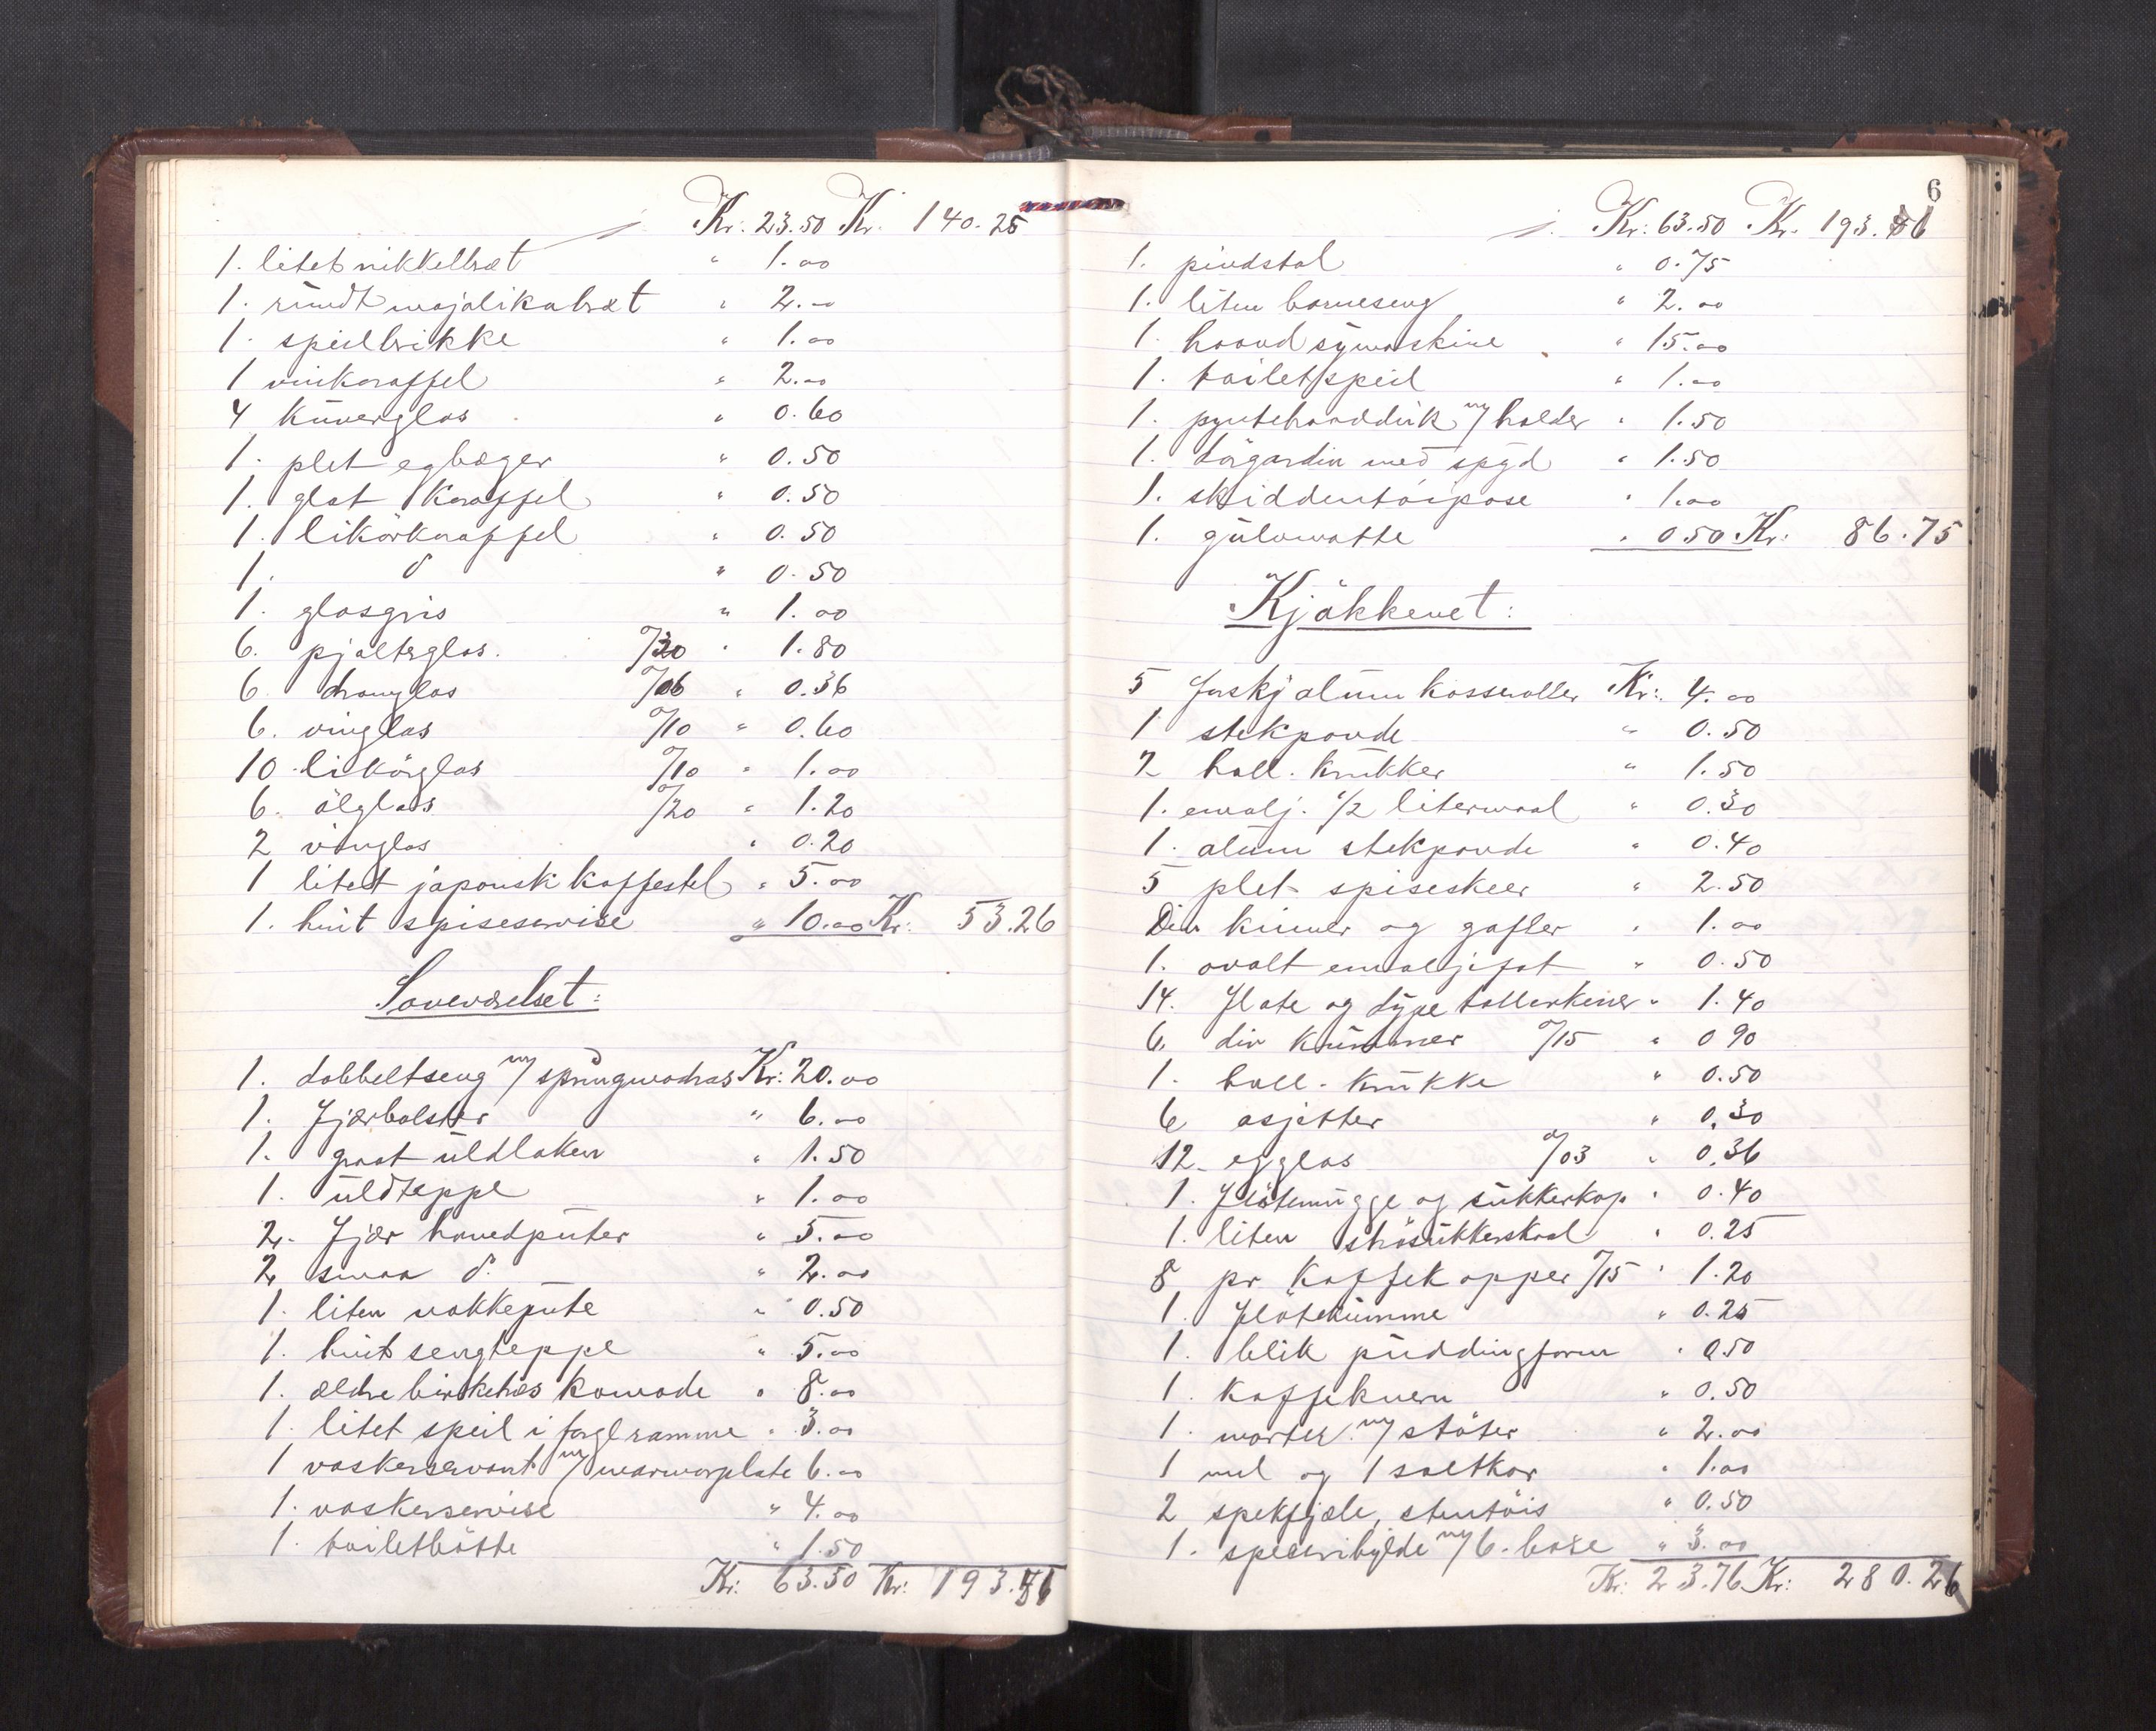 Kr: 23.50 Kr. 140.25
1. litet nikkelbræt " 1.00
1. rundt majolikabræt " 2.00
1. speilbrikke " 1.00
1 vinkaraffel " 2.00
4 kuverglas " 0.60
1. plet egbæger " 0.50
1. glat karaffel " 0.50
1. likörkaraffel " 0.50
1. do " 0.50
1. glasgris " 1.00
6. pjolterglas. a/30 " 1.80
6. dramglas a/06 " 0.36
6. vinglas a/10 " 0.60
10 likörglas a/10 " 1.00
6. ölglas a/20 " 1.20
2 vinglas " 0.20
1 litet japansk kaffestel " 5.00
1. hvit spiseservise " 10.00 Kr: 53.26
Soveværelset:
1. dobbeltseng m/ springmadras Kr: 20.00
1. fjærbolster " 6.00
1. graat uldlaken " 1.50
1. uldteppe " 1.00
2. fjær hovedputer " 5.00
2 smaa do. " 2.00
1. liten nakkepute " 0.50
1. hvit sengteppe " 5.00
1. ældre birketræs komode " 8.00
1. litet speil i forgl ramme " 3.00
1 vaskerservant m/ marmorplate 6.00
1. vaskerservise " 4.00
1. toiletbötte " 1.50
Kr: 63.50 Kr: 193.51
6
Kr: 63.50 Kr. 193.51
1. pindstol " 0.75
1. liten barneseng " 2.00
1. haandsymaskine " 15.00
1. toiletspeil " 1.00
1. pyntehaandduk m/ holder " 1.50
1. dörgardin med spyd " 1.50
1. skiddentöipose " 1.00
1. gulvmatte " 0.50 Kr: 86.75
Kjökkenet:
5 forskj alum kasseroller Kr: 4.00
1 stekpande " 0.50
2 holl. krukker " 1.50
1. emalj. 1/2 litermaal " 0.30
1. alum stekpande " 0.40
5 plet spiseskeer " 2.50
Div kniver og gafler " 1.00
1. ovalt emaljefat " 0.50
14. flate og dype tallerkener " 1.40
6. div kummer a/15 " 0 90
1. holl. krukke " 0.50
6 asjetter " 0.30
12. egglas a/03 " 0.36
1. flötemugge og sukkerkop " 0.40
1. liten strösukkerskaal " 0.25
8 pr kaffekopper a/15 " 1.20
1. flötekumme " 0.25
1. blik puddingform " 0.50
1. kaffekvern " 0.50
1. morter m/ stöter " 2.00
1 mel og 1 saltkar " 1.00
2 spekfjæle, stentöis " 0.50
1. speserihylde m/ 6. bokse " 3.00
Kr: 23.76 Kr: 280.26